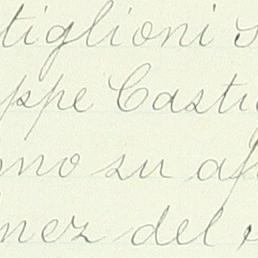 tiglioni s
ppe Casti
gno su af
nez del